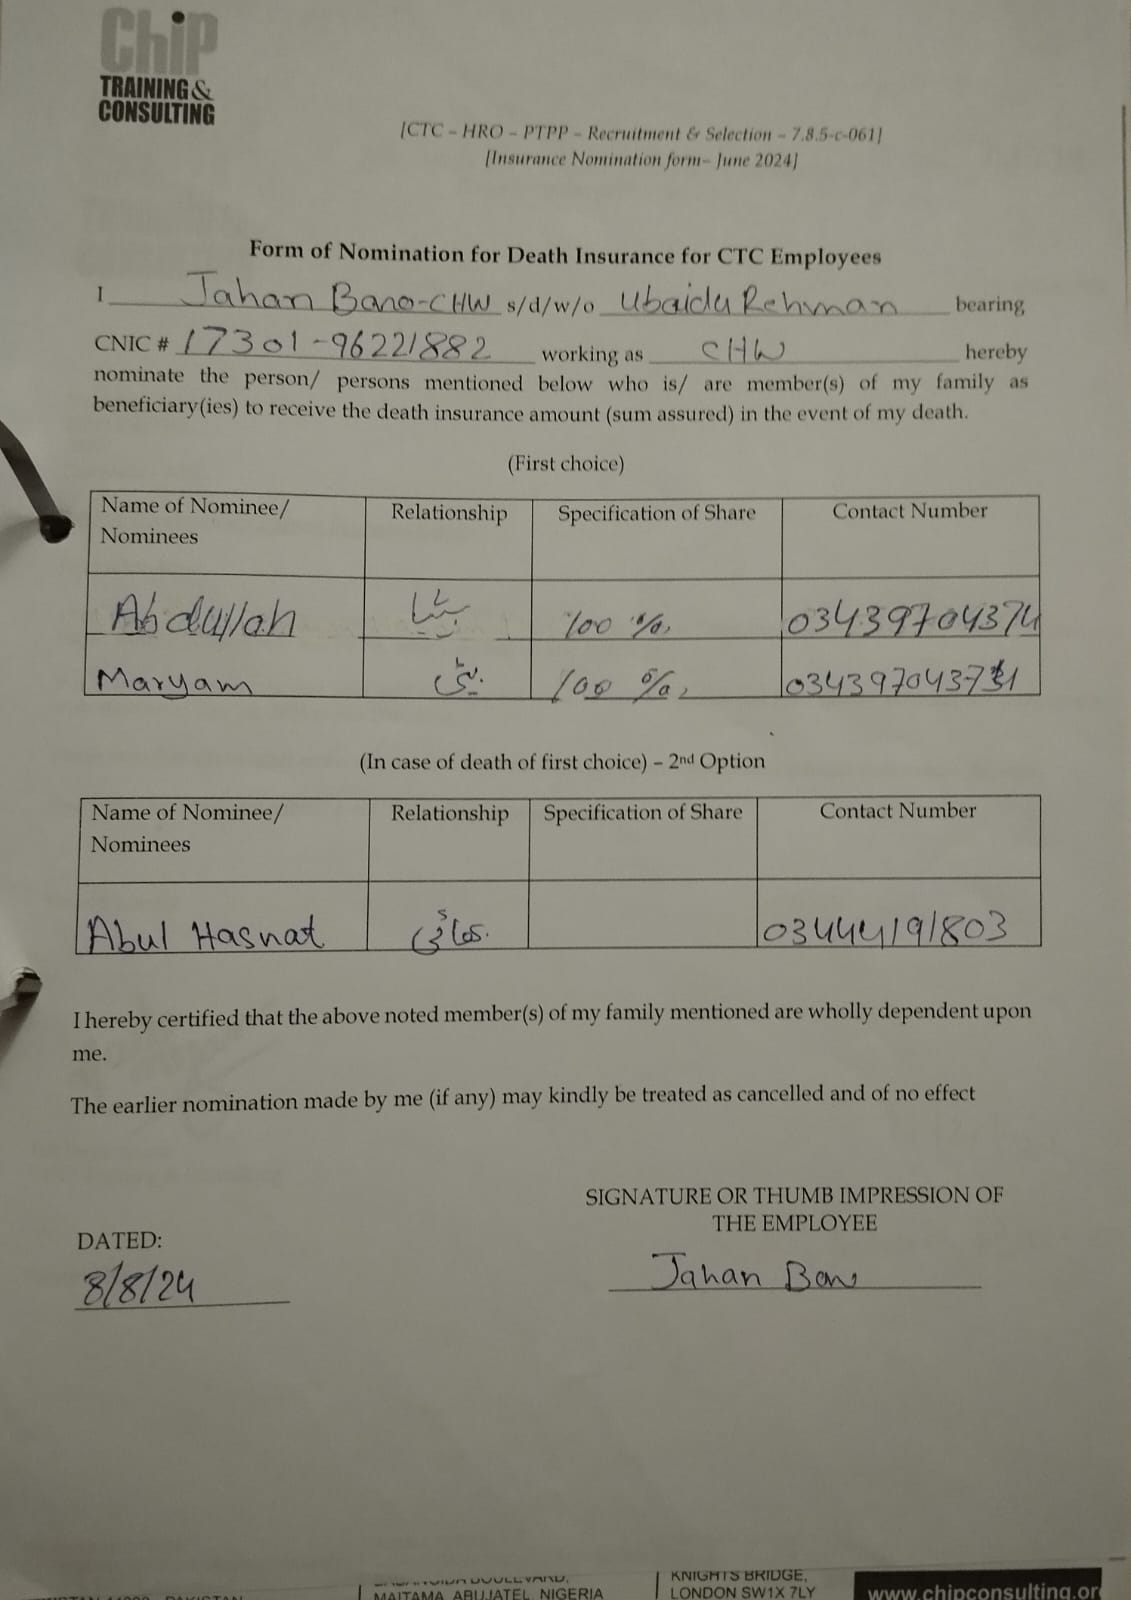 Chip
TRAINING &
CONSULTING
[CTC – HRO – PTPP – Recruitment & Selection – 7.8.5-c-061]
[Insurance Nomination form– June 2024]
Form of Nomination for Death Insurance for CTC Employees
I Jahan Bano-CHW s/d/w/o Ubaidu Rehman bearing
CNIC # 17301-96221882 working as CHW hereby
nominate the person/ persons mentioned below who is/ are member(s) of my family as
beneficiary(ies) to receive the death insurance amount (sum assured) in the event of my death.
(First choice)
Name of Nominee/ Relationship Specification of Share Contact Number
Nominees
Abdullah بیٹا 100 % 03439704374
Maryam بیٹی 100 %
(In case of death of first choice) – 2nd Option
Name of Nominee/ Relationship Specification of Share Contact Number
Nominees
Abul Hasnat بھائی 03444191803
I hereby certified that the above noted member(s) of my family mentioned are wholly dependent upon
me.
The earlier nomination made by me (if any) may kindly be treated as cancelled and of no effect
SIGNATURE OR THUMB IMPRESSION OF
THE EMPLOYEE
DATED:
8/8/24
Jahan Bano
KNIGHTS BRIDGE,
MAITAMA ABUJATEL NIGERIA
LONDON SW1X 7LY
www.chipconsulting.org